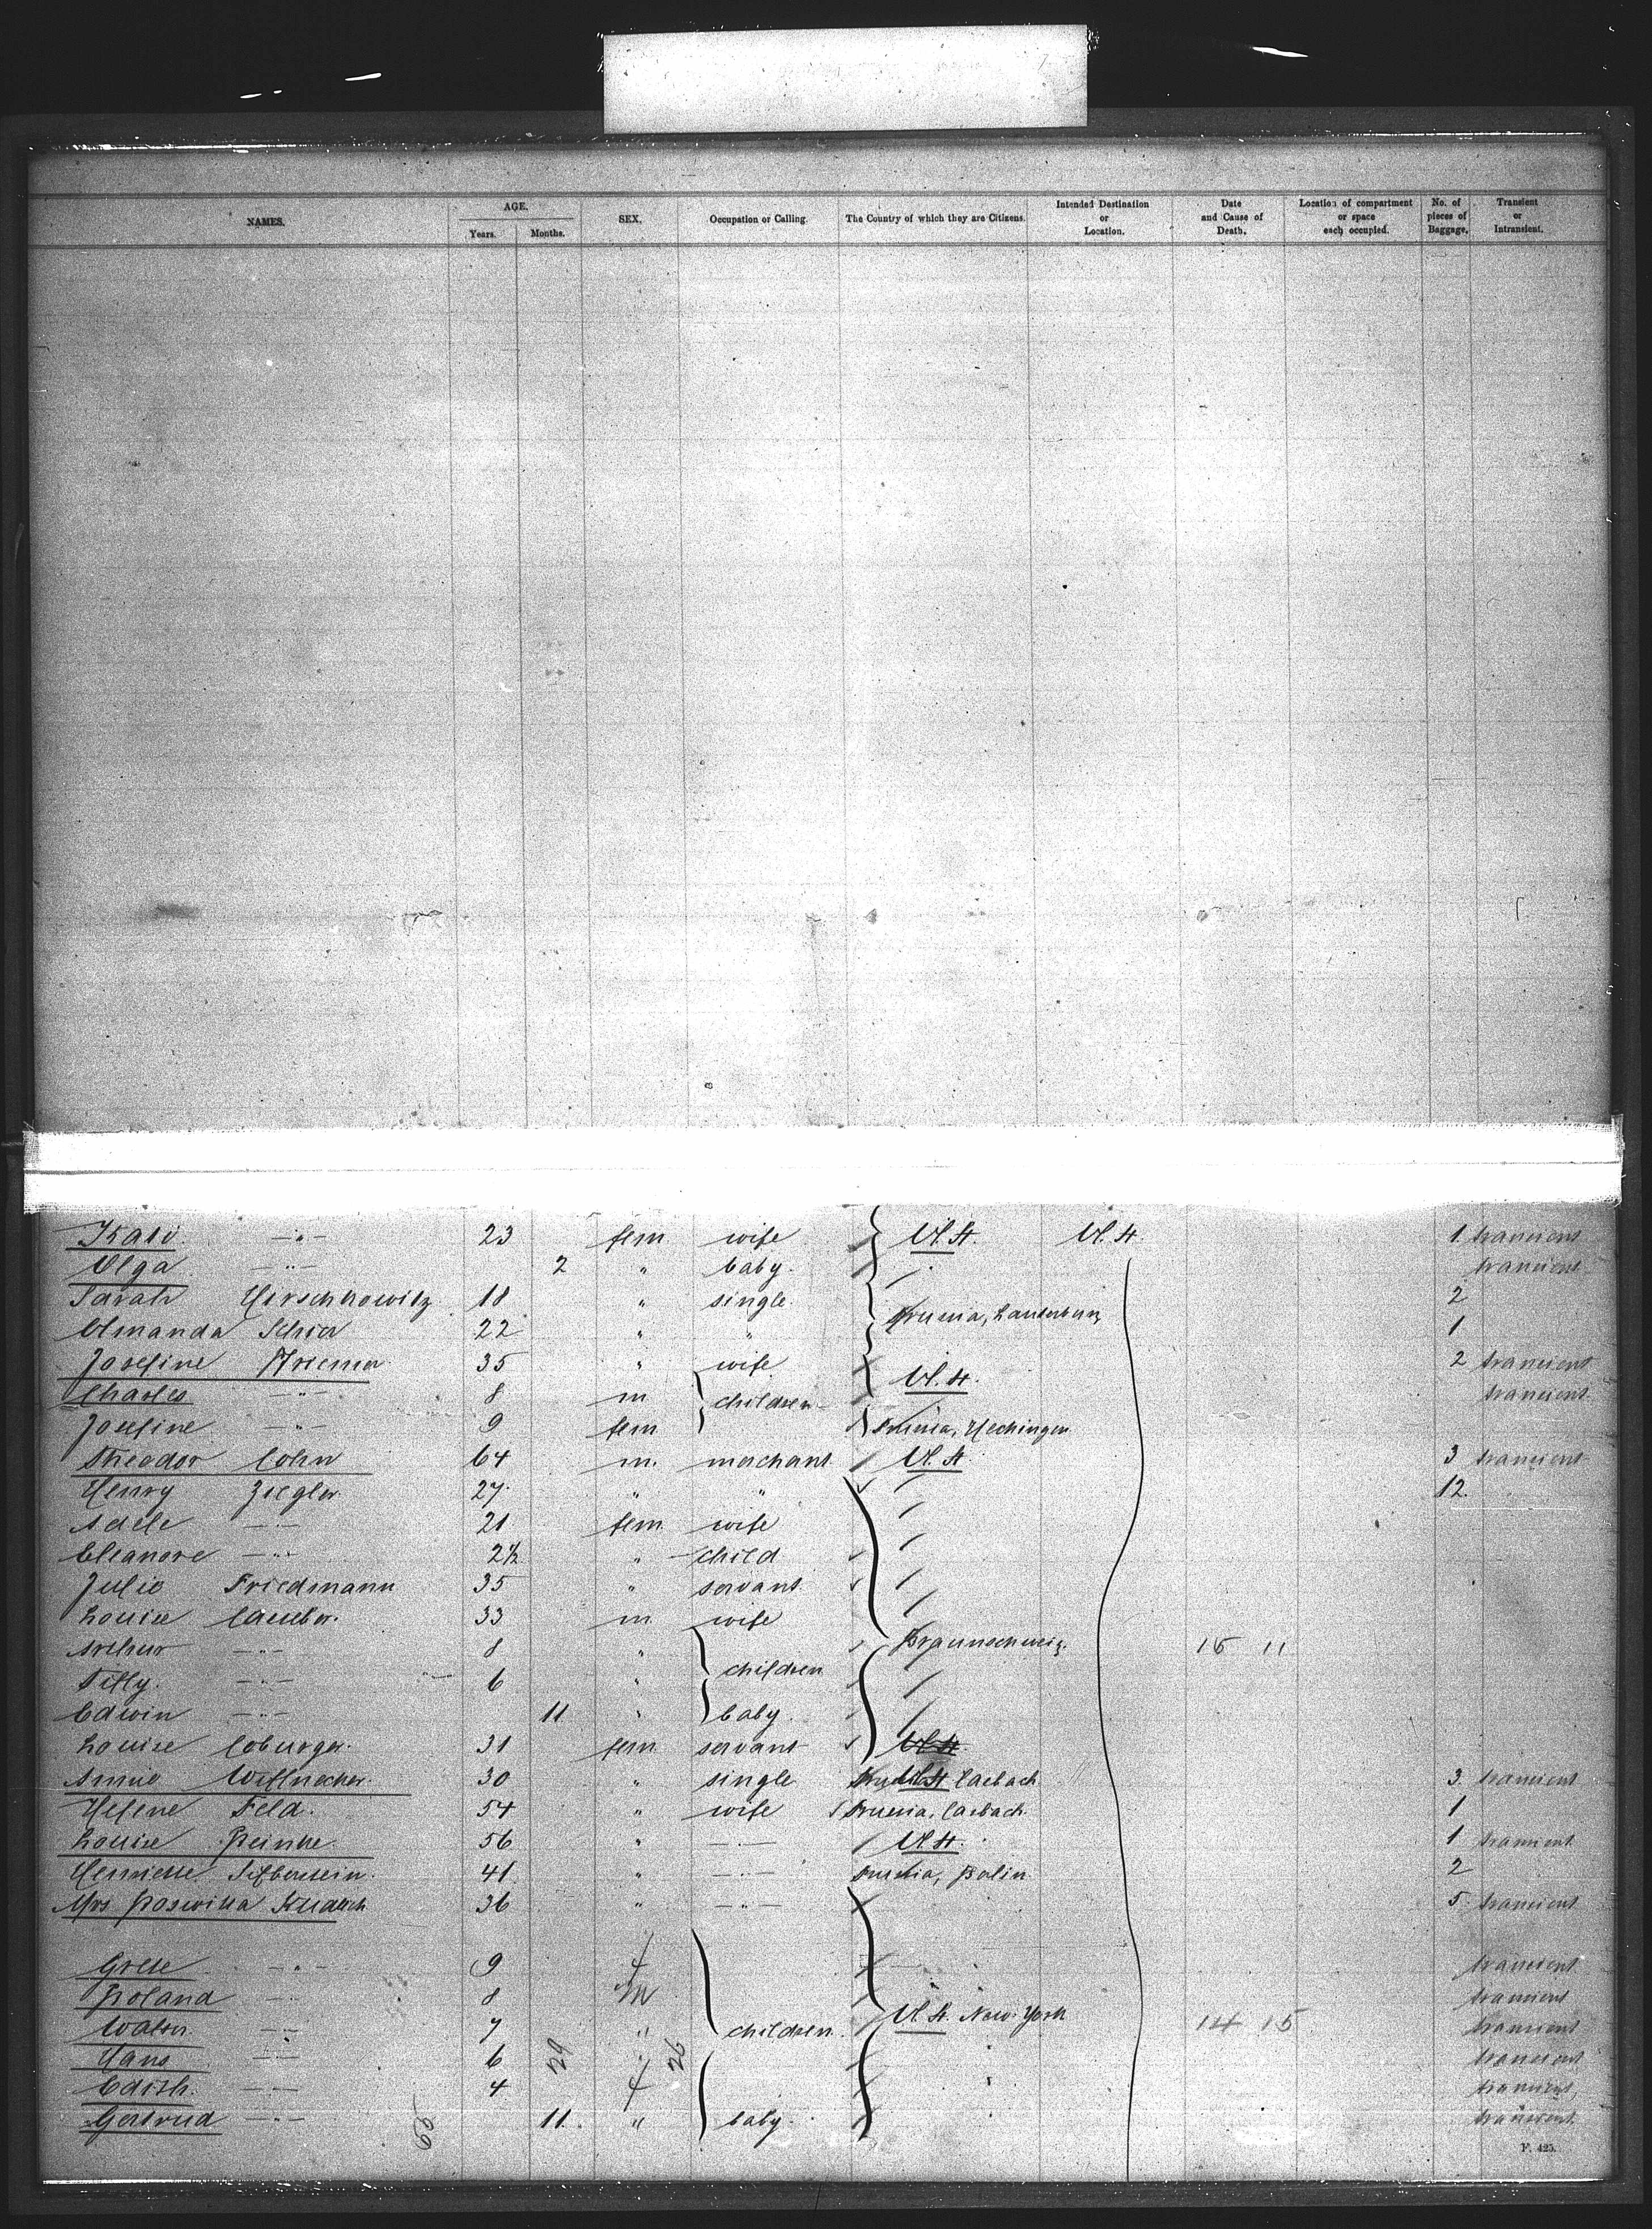 NAMES. AGE. Years. Months. SEX. Occupation or Calling. The Country of which they are Citizens. Intended Destination or Location. Date and Cause of Death. Location of compartment or space each occupied. No. of pieces of Baggage. Transient or Intransient.
Kati -"- 23 fem wife U.St. U.St. 1. transient
Olga -"- 2 " baby. transient
Sarah Hirschkowitz 18 " single. 2
Amanda 22 " " 1
Josefine 35 " wife 2 transient
Charles -"- 8 m children U.St. transient
Josefine -"- 9 fem Prussia, Hechingen
Theodor Cohn 64 m. merchant U.St. 3 transient
Henry Ziegler 27. " " 12.
Adele -"- 21 fem. wife
Eleanore -"- 2½ " child
Julie Friedmann 35 " servant
Louise 33 m wife
Arthur -"- 8 " Braunschweig. 15 11
Tilly. -"- 6 " children
Edwin -"- 11 " baby.
Louise Coburger. 31 fem servant U.St.
Annie 30 " single 3. transient
Helene Feld. 54 " wife Prussia, 1
Louise Reinke. 56 " -"- U.St. 1 transient
Henriette Silberstein. 41. " -"- 2
Mrs Roswitha Kudlich 36 " -"- 5 transient
Grete -"- 9 f transient
Roland -"- 8 m transient
Walter -"- 7 " children. U.St. New-York 14 15 transient
Hans -"- 6 29 " 26 transient
Edith. -"- 4 f transient
Gertrud -"- 11. " baby. transient.
65
F. 425.